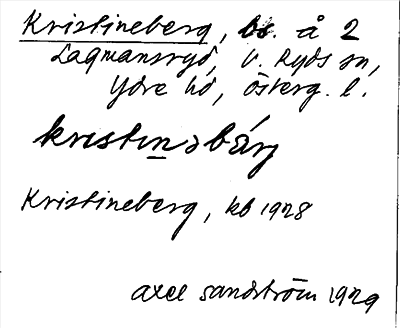 Kristineberg, bs. å 2
Lagmansryd, V. Ryds sn,
Ydre hd, Österg. l.
krɩstɩnəbärj
Kristineberg, kb 1928
Axel Sandström 1929